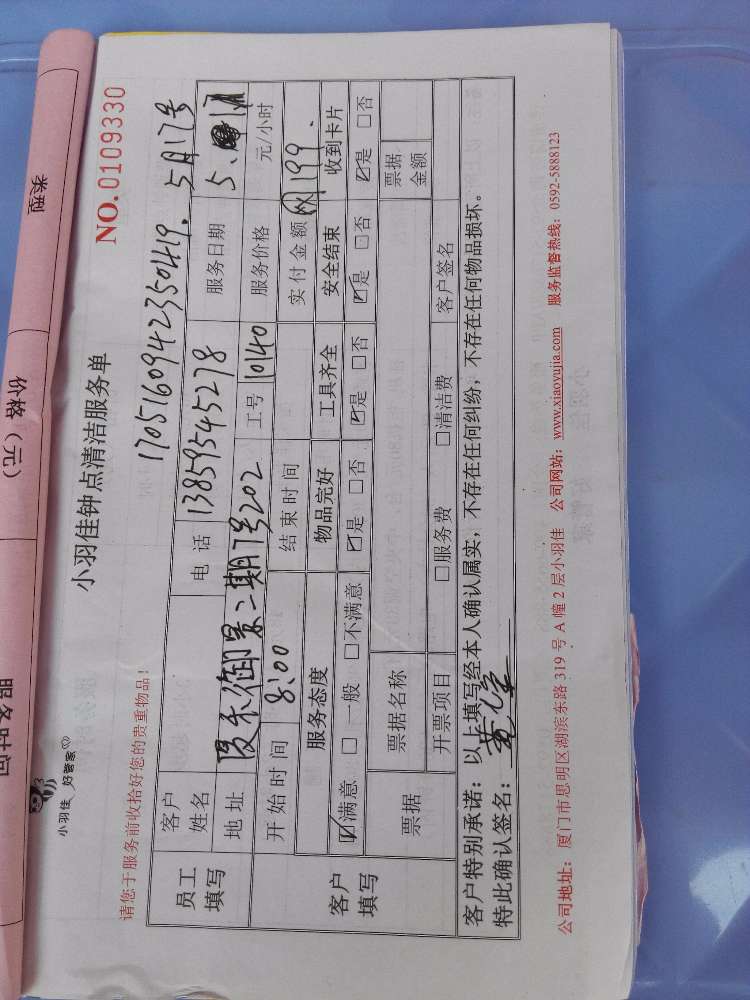 类型
价格（元）
服务时间
小羽佳 好管家
小羽佳钟点清洁服务单
NO.0109330
请您于服务前收拾好您的贵重物品！
1705160942350419. 5月17号
员工填写
客户姓名
电话 13859545278
服务日期 5.
地址 二期7号202
工号 10140
服务价格 元/小时
客户填写
开始时间 8:00
结束时间
实付金额 网199.
服务态度 物品完好 工具齐全 安全结束 收到卡片
☑满意 □一般 □不满意 ☑是 □否 ☑是 □否 ☑是 □否 ☑是 □否
票据 票据名称 票据金额
开票项目 □服务费 □清洁费 客户签名
客户特别承诺：以上填写经本人确认属实，不存在任何纠纷，不存在任何物品损坏。
特此确认签名：
公司地址：厦门市思明区湖滨东路 319 号 A 幢 2 层小羽佳 公司网站：www.xiaoyujia.com 服务监督热线：0592-5888123